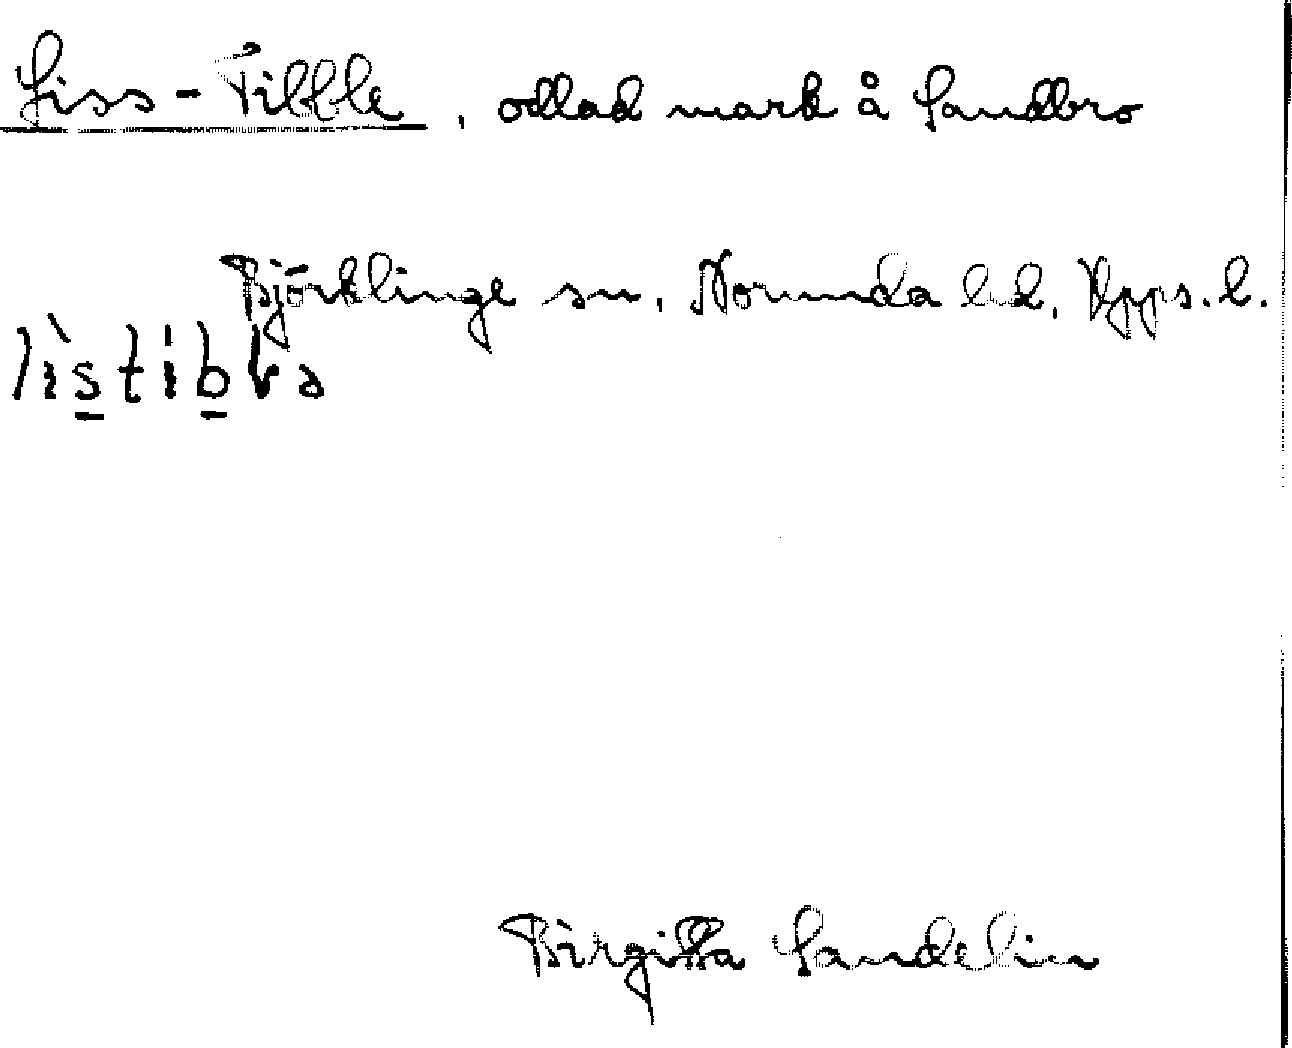 Liss-Tibble, odlad mark å Sandbro
Björklinge sn, Norunda hd, Upps. l.
Birgitta Sandelin